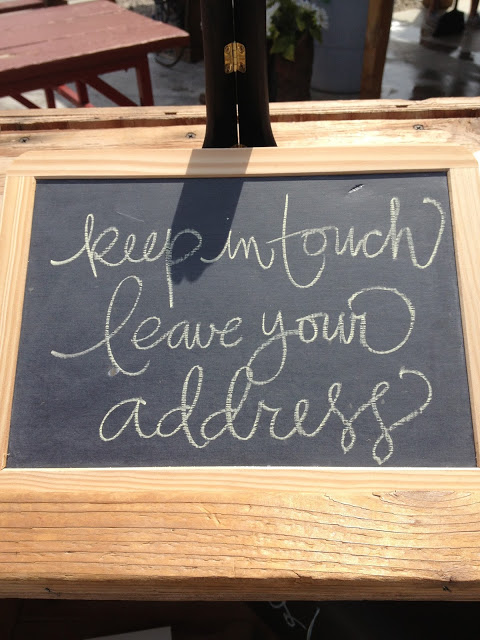 keep in touch
leave your
address